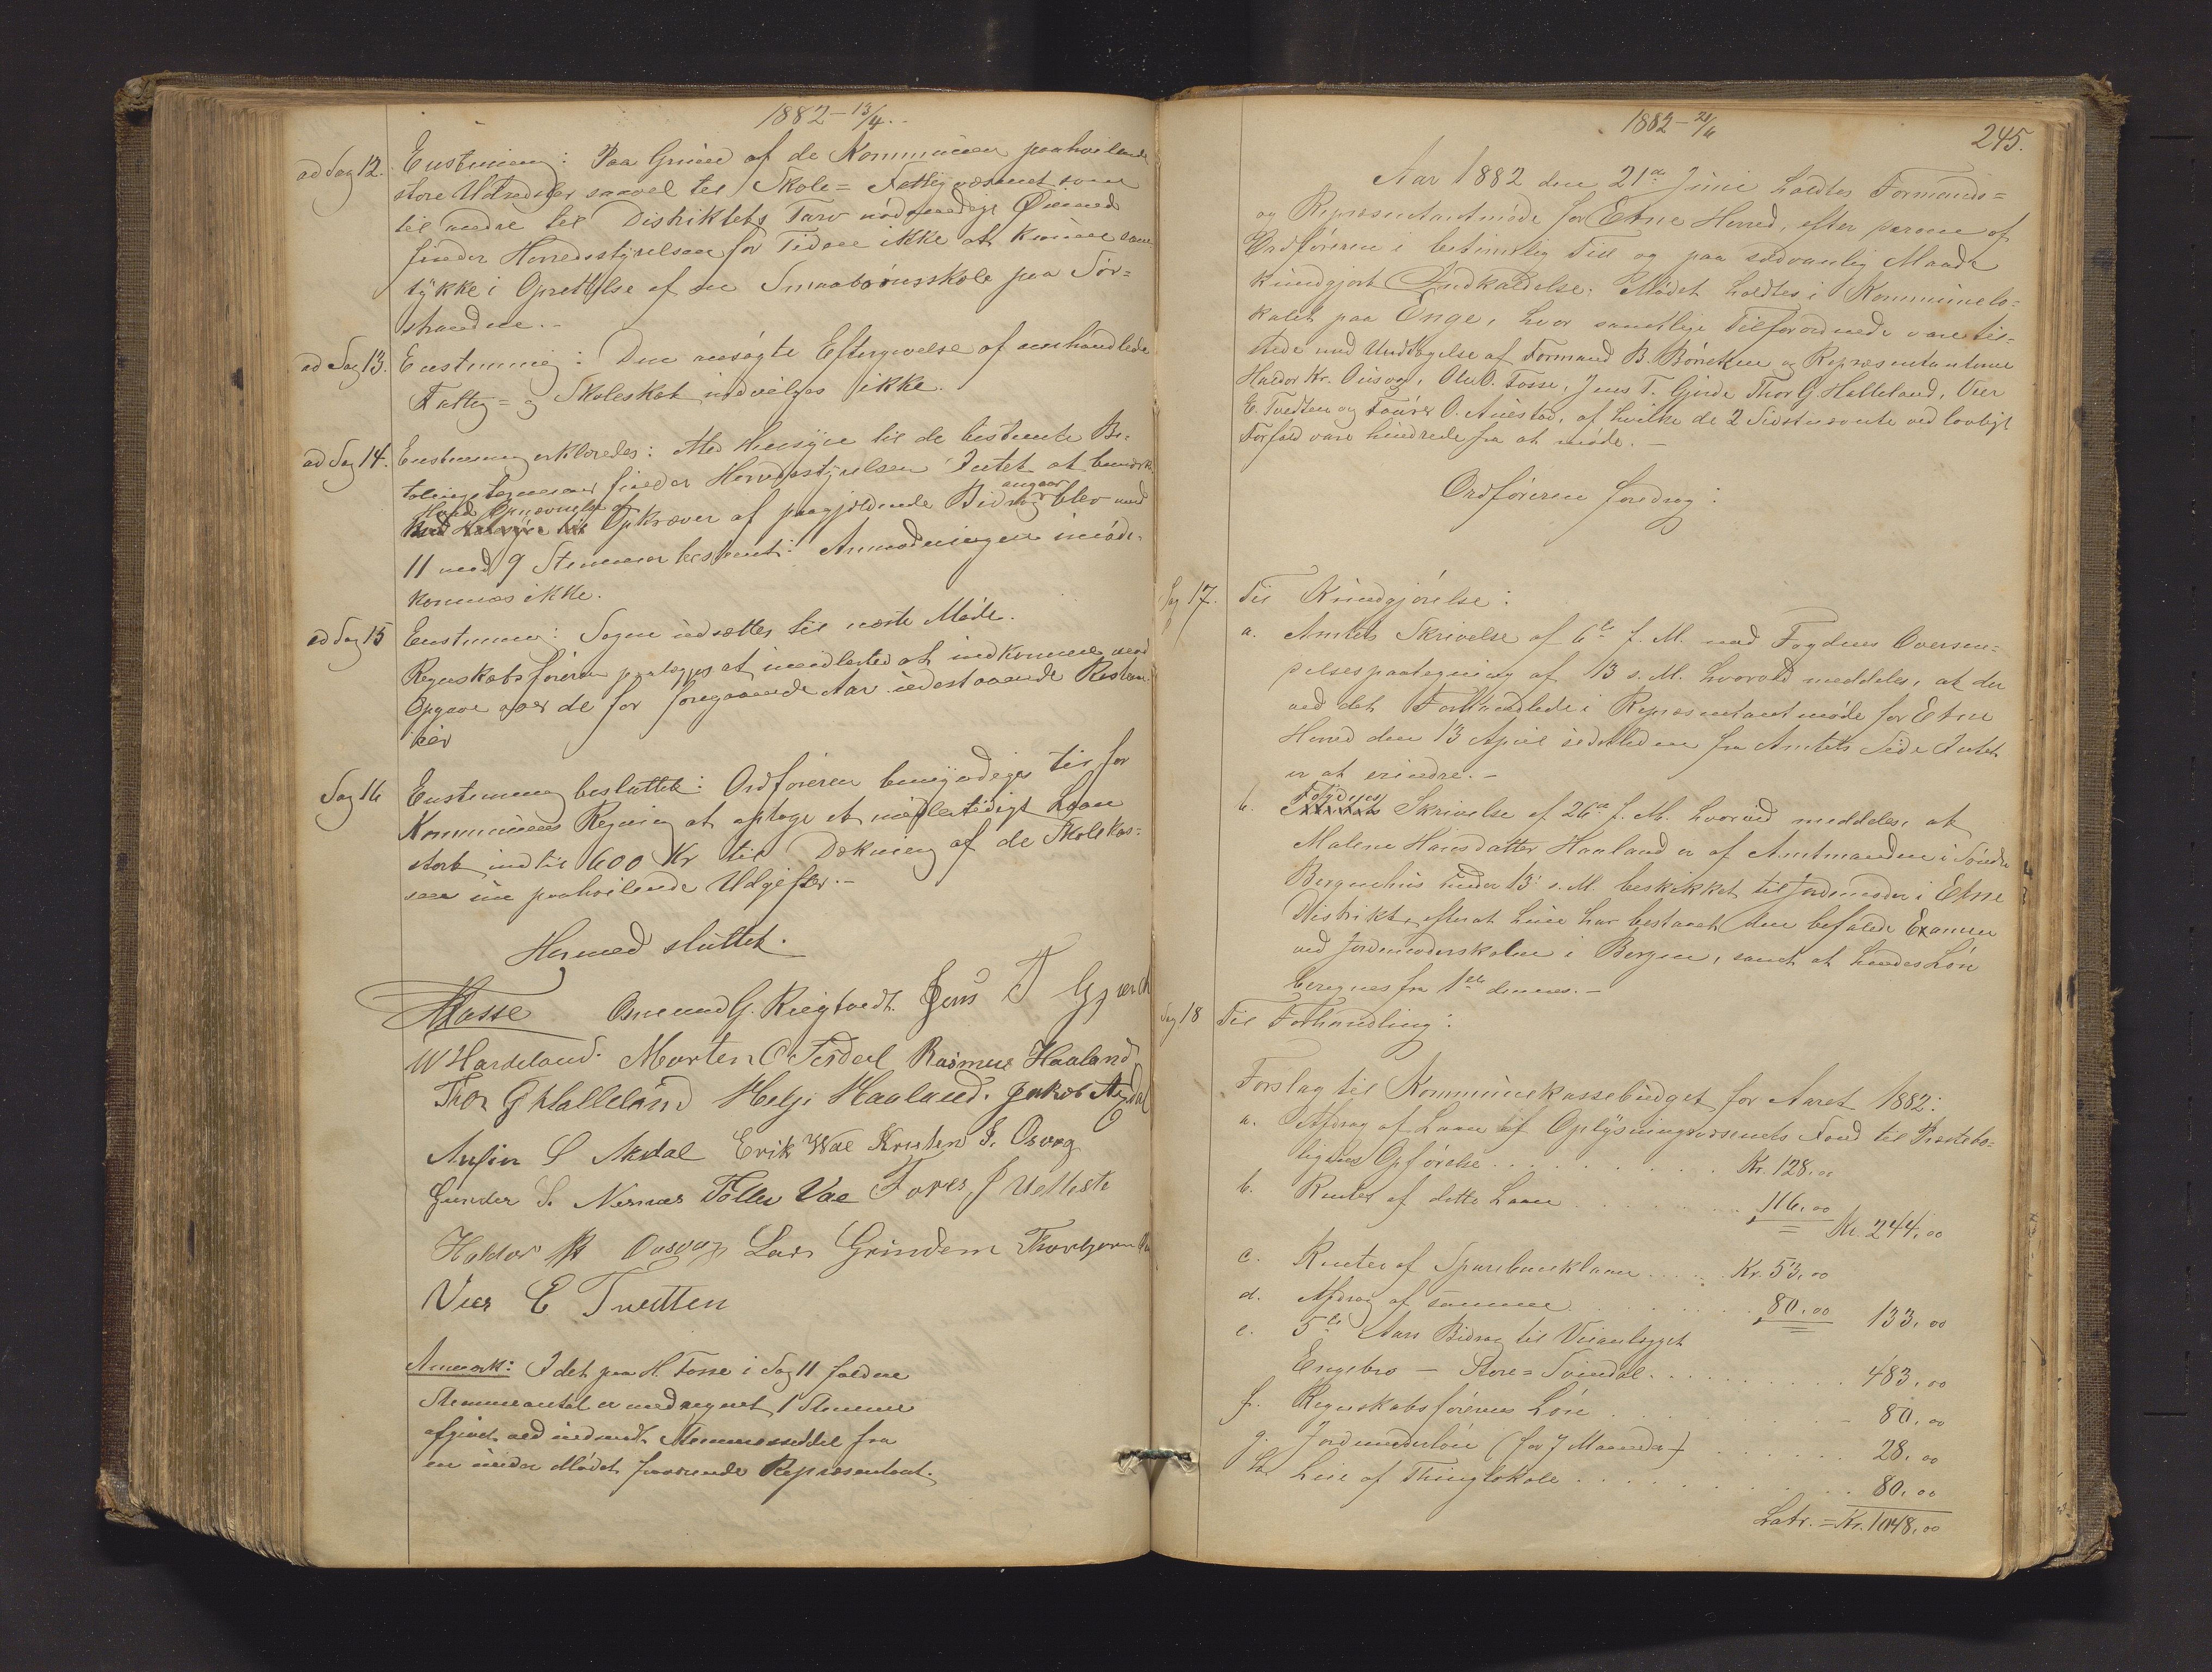 1882 - 13/4.
ad Sag 12. Enstemmig: Paa Grund af de Kommunen paahvilende
store Udredsler saavel til Skole= Fattigvæsenet som
til andre til Distriktets Tarv nødvendige Øiemed
finder Herredsstyrelsen for Tiden ikke at kunne sam
tykke i Oprettelse af en Smaabørnsskole paa Sør=
stranden.-
ad Sag 13. Enstemmig: Den ansøgte Eftergivelse af omhandlede
Fattig= og Skoleskat indvilges ikke.
ad Sag 14. Enstemmig erklæredes: Med Hensyn til de bestemte Be-
talingsterminer finder Herredsstyrelsen Intet at bemærke.
Hvad Opnævnelse af Opkræver af paagjældende Bidrag angaar blev med
11 mod 9 Stemmer bestemt: Anmodningen imøde-
kommes ikke.
ad Sag 15 Enstemmig: Sagen udsættes til næste Møde.
Regnskabsføreren paalægges at imidlertid at indkomme med
Opgave over de for foregaaende Aar udestaaende Restan-
cer
Sag 16 Enstemmig besluttet: Ordføreren bemyndiges til for
Kommunens Regning at optage et midlertidigt Laan
stort indtil 600 Kr til Dækning af de Skolekas-
sen nu paahvilende Udgifter.-
Hermed sluttet.
HFosse Osmund G. Rygtvedt. Jens T Gjerde
W Hardeland. Morten C Tesdal Rasmus Haaland
Thor G Halleland Helje Haaland. Jakob
Anfin S Mæhle Erik Vae Kristen J. Osvog
Gunder S. Nernæs Tollev Vae Tores J Vetteste
Haldor K Ousvog Lars Grindem Thorbjørn
Vier E Tvedten
Anmærk: I det paa H. Fosse i Sag 11 faldne
Stemmeantal er medregnet 1 Stemme
afgivet ved indsendt Stemmeseddel fra
en under Mødet fraværende Repræsentant.
1882 - 21/6
245.
Aar 1882 den 21de Juni holdtes Formands=
og Repræsentantmøde for Etne Herred, efter paa af
Ordføreren i betimelig Tid og paa sædvanlig Maade
kundgjort Indkaldelse. Mødet holdtes i Kommunelo-
kalet paa Enge, hvor samtlige Tilforordnede vare til-
stede med Undtagelse af Formand B. Børretzen og Repræsentanterne
Haldor Kr. Ousvog, Ole O. Fosse, Jens T. Gjerde Thor G. Halleland, Vier
E. Tvedten og Tarres O. Austad, af hvilke de 2 Sidstnævnte ved lovligt
Forfald vare hindrede fra at møde.-
Ordføreren foredrog:
Sag 17. Til Kundgjørelse:
a. Amtets Skrivelse af 6te f. M. med Fogdens Oversen=
delsespaategning af 13 s. M. hvorved meddeles, at der
ved det Forhandlede i Repræsentantmøde for Etne
Herred den 13 April sidstleden fra Amtets Side Intet
er at erindre.-
b. Fogdens Skrivelse af 26de f. M. hvorved meddeles, at
Malene Hansdatter Haaland er af Amtmanden i Søndre
Bergenhus under 13 s. M. beskikket til Jordmoder i Etne
Distrikt, efterat hun har bestaaet den befalede Examen
ved Jordmoderskolen i Bergen, samt at hendes Løn
beregnes fra 1ste dennes.-
Sag 18 Til Forhandling:
Forslag til Kommunekassebudget for Aaret 1882:
a. Afdrag af Laan af Oplysningsvæsenets Fond til Præstebo-
ligens Opførelse . . . . . . . . . . Kr. 128.00
b. Renter af dette Laan . . . . . . . . 116.00
Kr. 244.00
c. Renter af Sparebanklaan . . . . . Kr. 53.00
d. Afdrag af samme . . . . . . . . 80.00 133.00
e. 5te Aars Bidrag til Veianlægget
Engebro - Store=Svindal . . . . . . . . . 483.00
f. Regnskabsførerens Løn . . . . . . . . 80.00
g. Jordmoderløn (for 7 Maaneder) . . . . . . 28.00
h. Leie af Thinglokale . . . . . . . . . . 80.00
Latr. = Kr. 1048.00